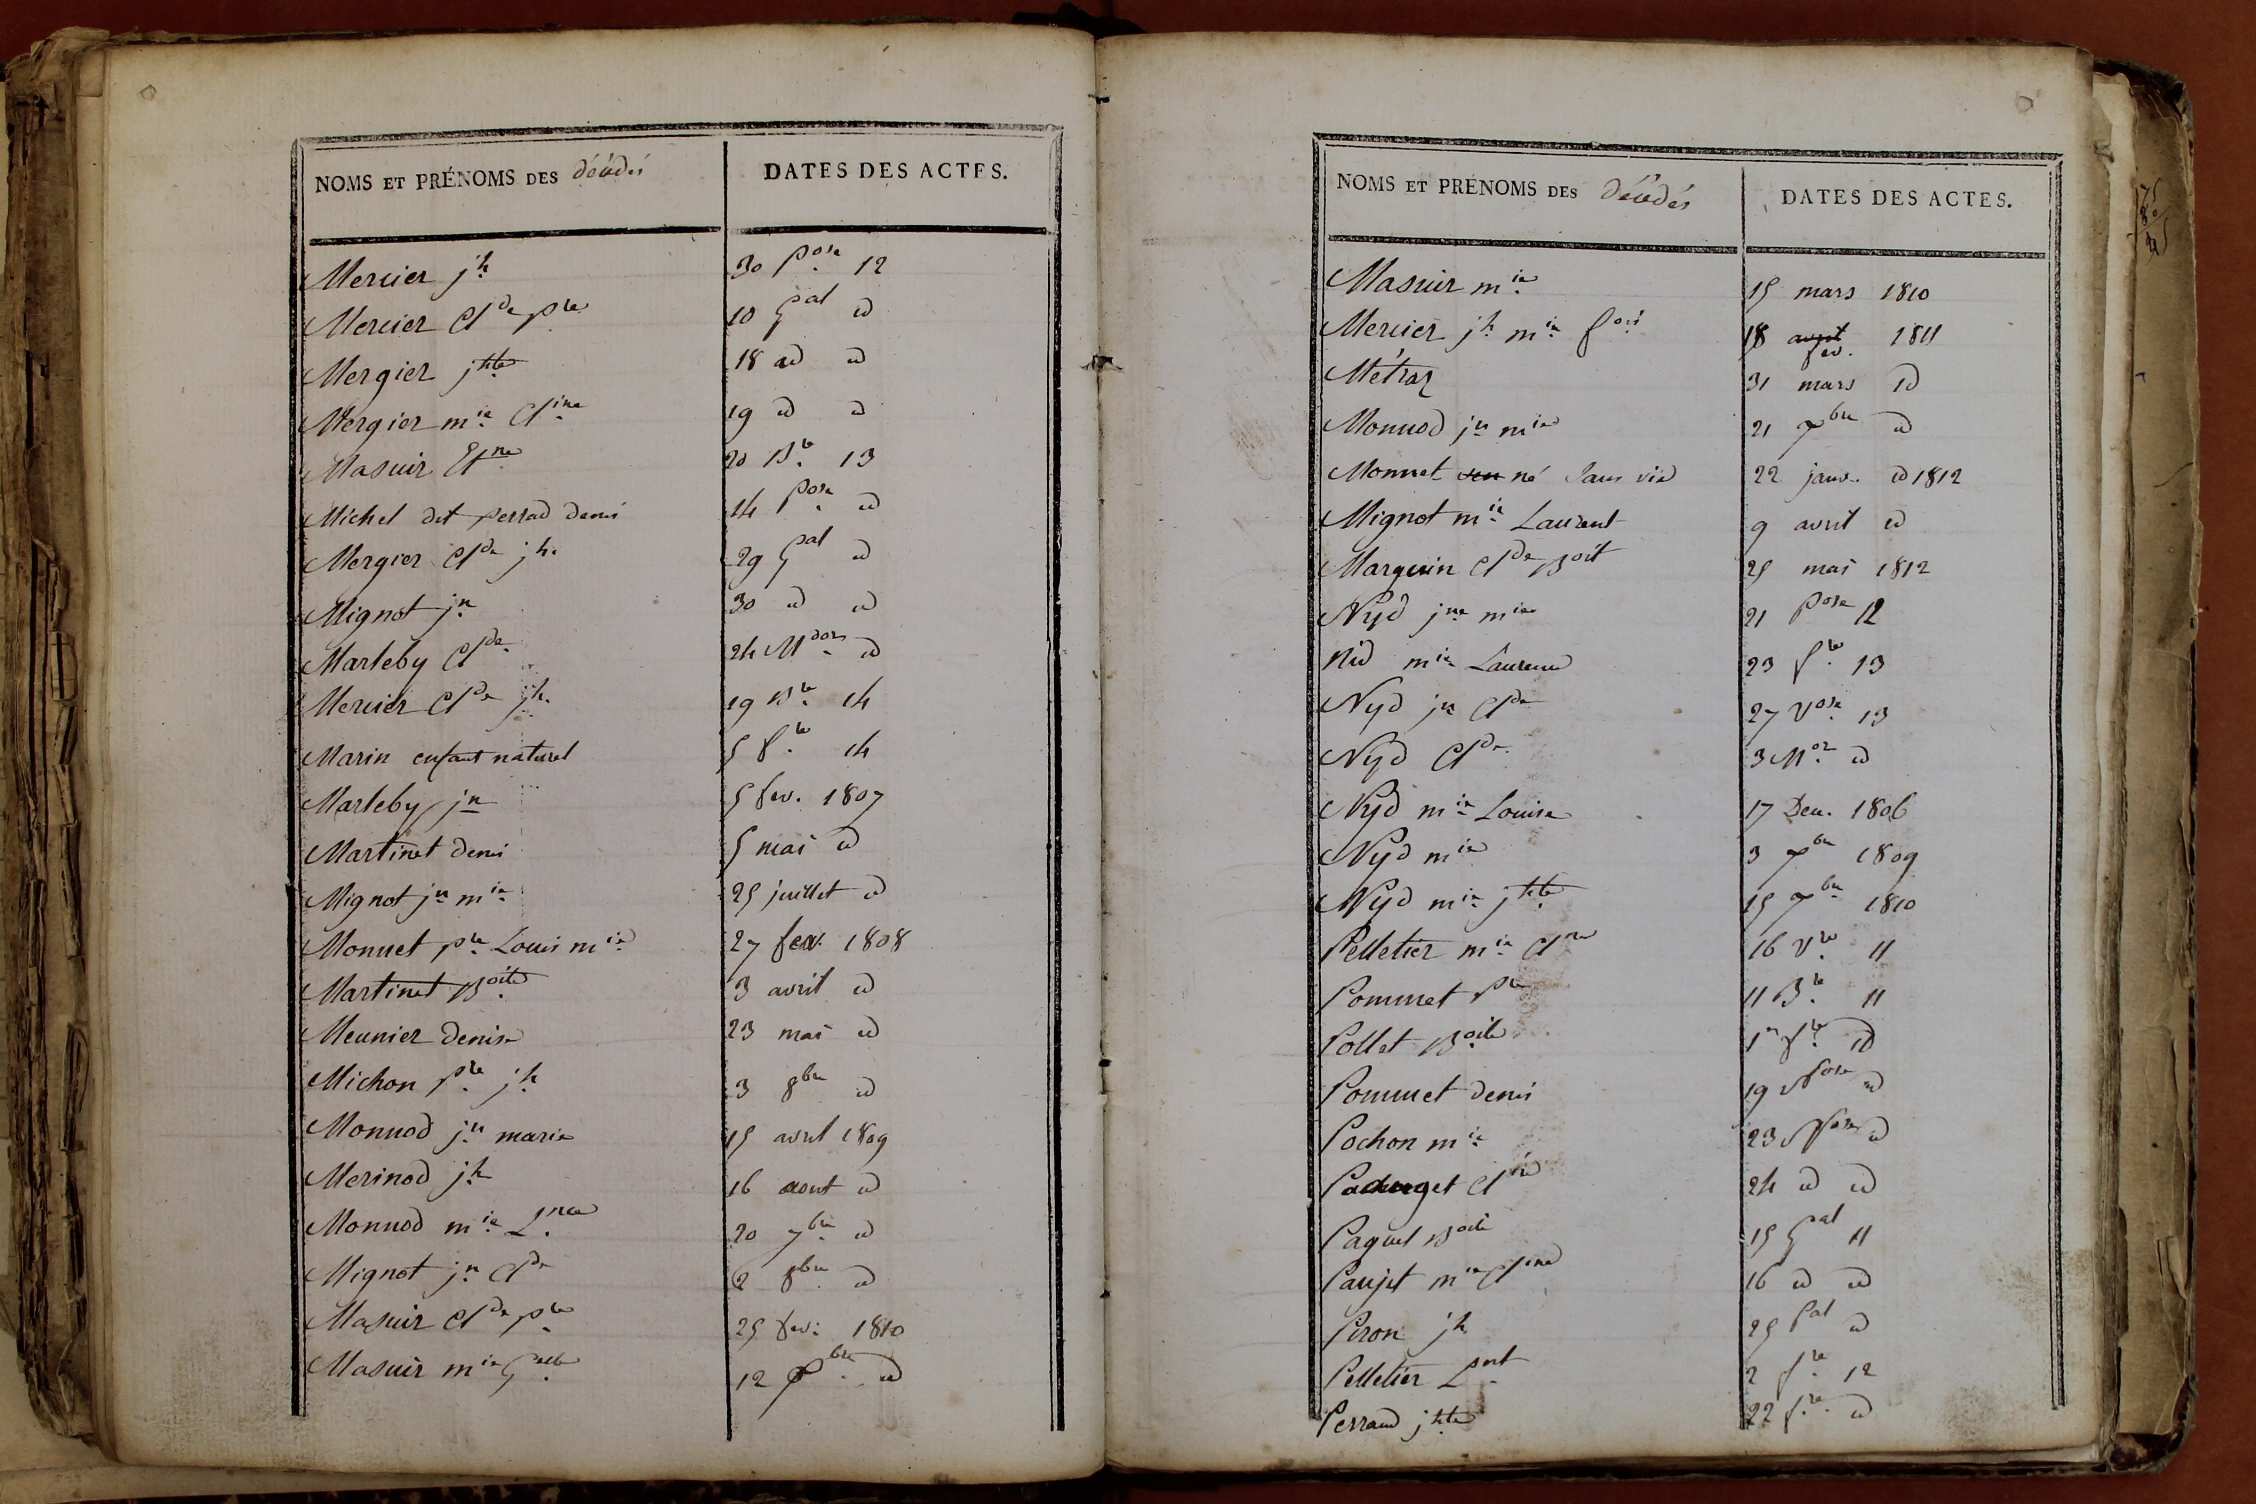 NOMS ET PRÉNOMS DES décédés
DATES DES ACTES.
Mercier jh 30 Pose 12
Mercier Clde pre 10 Gal id
Mergier jhte 18 id id
Mergier mie Cline 19 id id
Masuir Etne 20 Bre 13
Michel dit perrad denis 14 Pose id
Mergier Clde jh. 29 Gal id
Mignot jn 30 id id
Marleby Clde 24 Mdor id
Mercier Clde jh. 19 Bre 14
Marin enfant naturel 5 fre 14
Marleby jn 5 fev. 1807
Martinet denis 5 mai id
Mignot jn mie 25 juillet id
Monnet pre Louis mie 27 fev. 1808
Martinet Boite 3 avril id
Meunier denise 23 mai id
Michon Pre jh 3 8bre id
Monnod jn marie 15 avril 1809
Merinod jh 16 aout id
Monnod mie Lnce 20 7bre id
Mignot jn Clde 2 8bre id
Masuir Clde pre 25 fev: 1810
Masuir mie 12 id
NOMS ET PRÉNOMS DES décédés
DATES DES ACTES.
Masuir mie 15 mars 1810
Mercier jh mie fois 18 avril fev. 1811
Métraz 31 mars id
Monnod jn mie 21 id
Monnet né sans vie 22 janv. id 1812
Mignot mie Laurent 9 avril id
Marguin Clde Boit 25 mai 1812
Nyd jne mie 21 Pose 12
Nid mie Laurence 23 fre 13
Nyd jn Clde 27 Vose 13
Nyd Clde 3 Mor id
Nyd mie Louise 17 Dec. 1806
Nyd mie 3 1809
Nyd mie jhte 15 1810
Pelletier mie Clne 16 Vre 11
Pommet Pre 11 Bre 11
Pollet Boite 1er fre id
Pommet denis 19 id
Pochon mie 23 id
24 id id
Paquet Boite 15 Gal 11
Paujet mie Cline 16 id id
Piron jh 25 Pal id
Pelletier Lent 2 fre 12
Perraud jhte 22 fre id